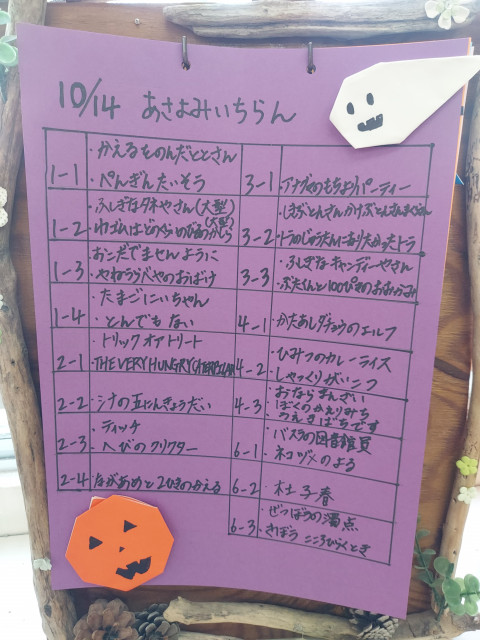 10/14 あさよみいちらん
1-1
・かえるをのんだととさん
・ぺんぎんたいそう
1-2
・ふしぎなタネやさん(大型)
・わゴムはどのくらいのびるかしら(大型)
1-3
・おこだでませんように
・やねうらべやのおばけ
1-4
・たまごにいちゃん
・とんでもない
2-1
・トリック オア トリート
・THE VERY HUNGRY CATERPILLAR
2-2
・シナの五にんきょうだい
2-3
・ティッチ
・へびのクリクター
2-4
・ながあめと2ひきのかえる
3-1
・アナグマのもちよりパーティー
3-2
・しきぶとんさんかけぶとんさんまくらさん
・トラのじゅうたんになりたかったトラ
3-3
・ふしぎなキャンディーやさん
・ぶたくんと100ぴきのおおかみ
4-1
・かたあしダチョウのエルフ
4-2
・ひみつのカレーライス
・しゃっくりがいこつ
4-3
・おならまんざい
・ぼくのかえりみち
・うえきばちです
6-1
・バスラの図書館員
・ネコヅメのよる
6-2
・杜子春
6-3
・ぜつぼうの濁点
・きぼう こころひらくとき